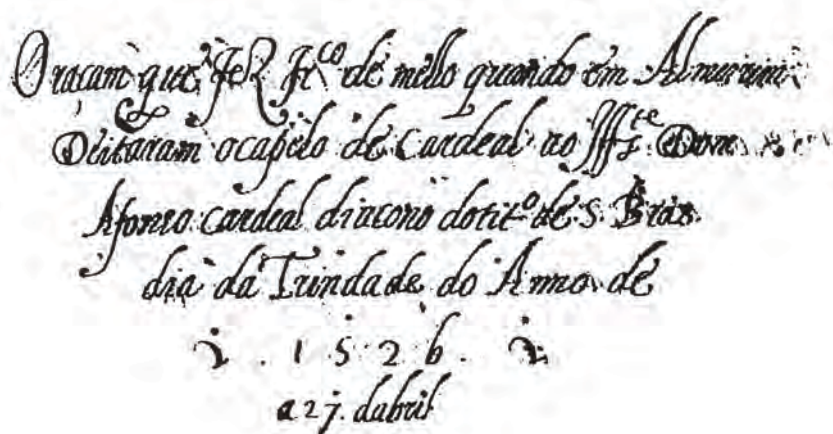 Oraçam que fez fr.co de mello quando em Almeirim
Deitaram o capelo de Cardeal ao Iff.te Dom
Afonso cardeal diacono do tit.o de S. Bras
dia da Trindade do Anno de
1526.
a 27. dabril